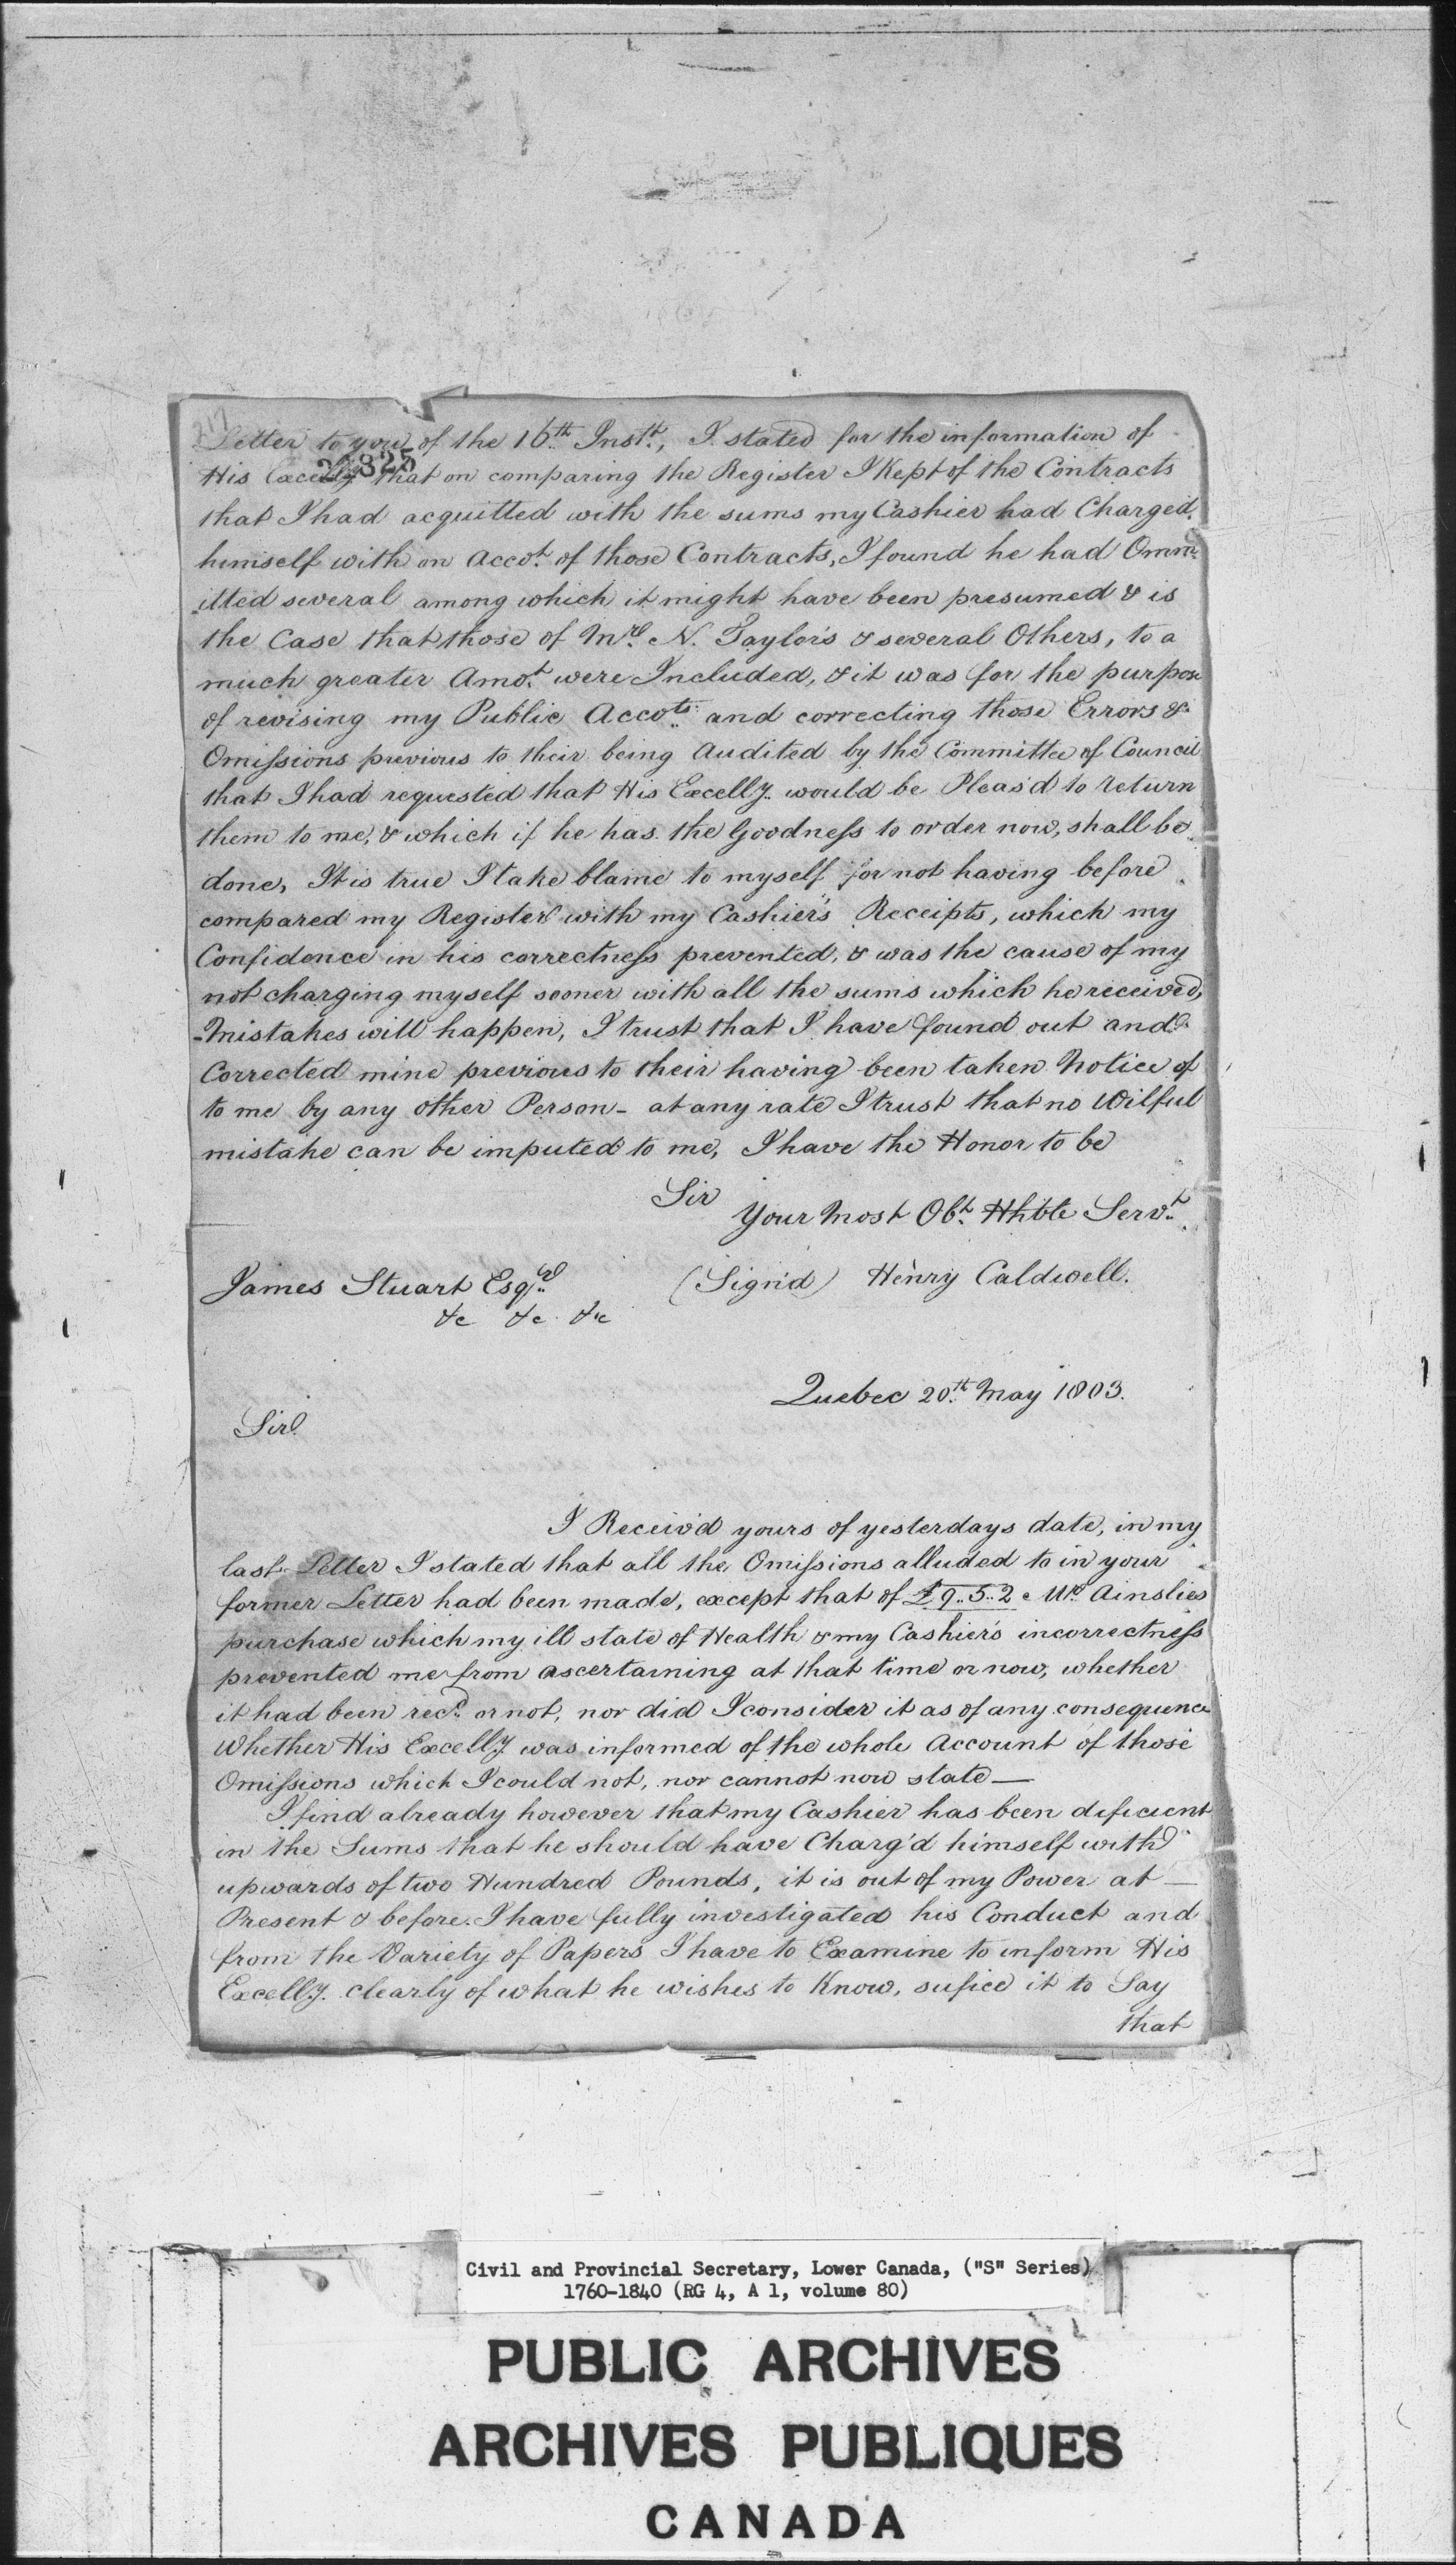 Letter to you of the 16th. Instt., I stated for the information of
His Excelly. that on comparing the Register I Kept of the Contracts
that I had acquitted with the sums my Cashier had Charged
himself with on Accot. of those Contracts, I found he had Omm-
-itted several among which it might have been presumed & is
the Case that those of Mr. N. Taylor's & several Others, to a
much greater Amot. were Included, & it was for the purpose
of revising my Public Accots. and correcting those Errors &
Omissions previous to their being Audited by the Committee of Council
that I had requested that His Excelly. would be Pleas'd to return
them to me, & which if he has the Goodness to order now, shall be
done, It is true I take blame to myself for not having before
compared my Register with my Cashier's Receipts, which my
Confidence in his correctness prevented, & was the cause of my
not charging myself sooner with all the sums which he received,
-Mistakes will happen, I trust that I have found out and
Corrected mine previous to their having been taken Notice of
to me by any other Person - at any rate I trust that no Wilful
mistake can be imputed to me, I have the Honor to be
Sir
Your Most Obt. Hble Servt.
James Stuart Esqr. (Sign'd) Henry Caldwell.
&c &c &c
Quebec 20th. May 1803.
Sir
I Receiv'd yours of yesterdays date, in my
last Letter I stated that all the Omissions alluded to in your
former Letter had been made, except that of £9..5..2 Mr. Ainslies
purchase which my ill state of Health & my Cashier's incorrectness
prevented me from ascertaining at that time or now, whether
it had been recd. or not, nor did I consider it as of any consequence
Whether His Excelly. was informed of the whole Account of those
Omissions which I could not, nor cannot now state —
I find already however that my Cashier has been deficient
in the Sums that he should have Charg'd himself with
upwards of two Hundred Pounds, it is out of my Power at —
Present & before I have fully investigated his Conduct and
from the Variety of Papers I have to Examine to inform His
Excelly. clearly of what he wishes to Know, sufice it to Say
that
Civil and Provincial Secretary, Lower Canada, ("S" Series)
1760-1840 (RG 4, A 1, volume 80)
PUBLIC ARCHIVES
ARCHIVES PUBLIQUES
CANADA